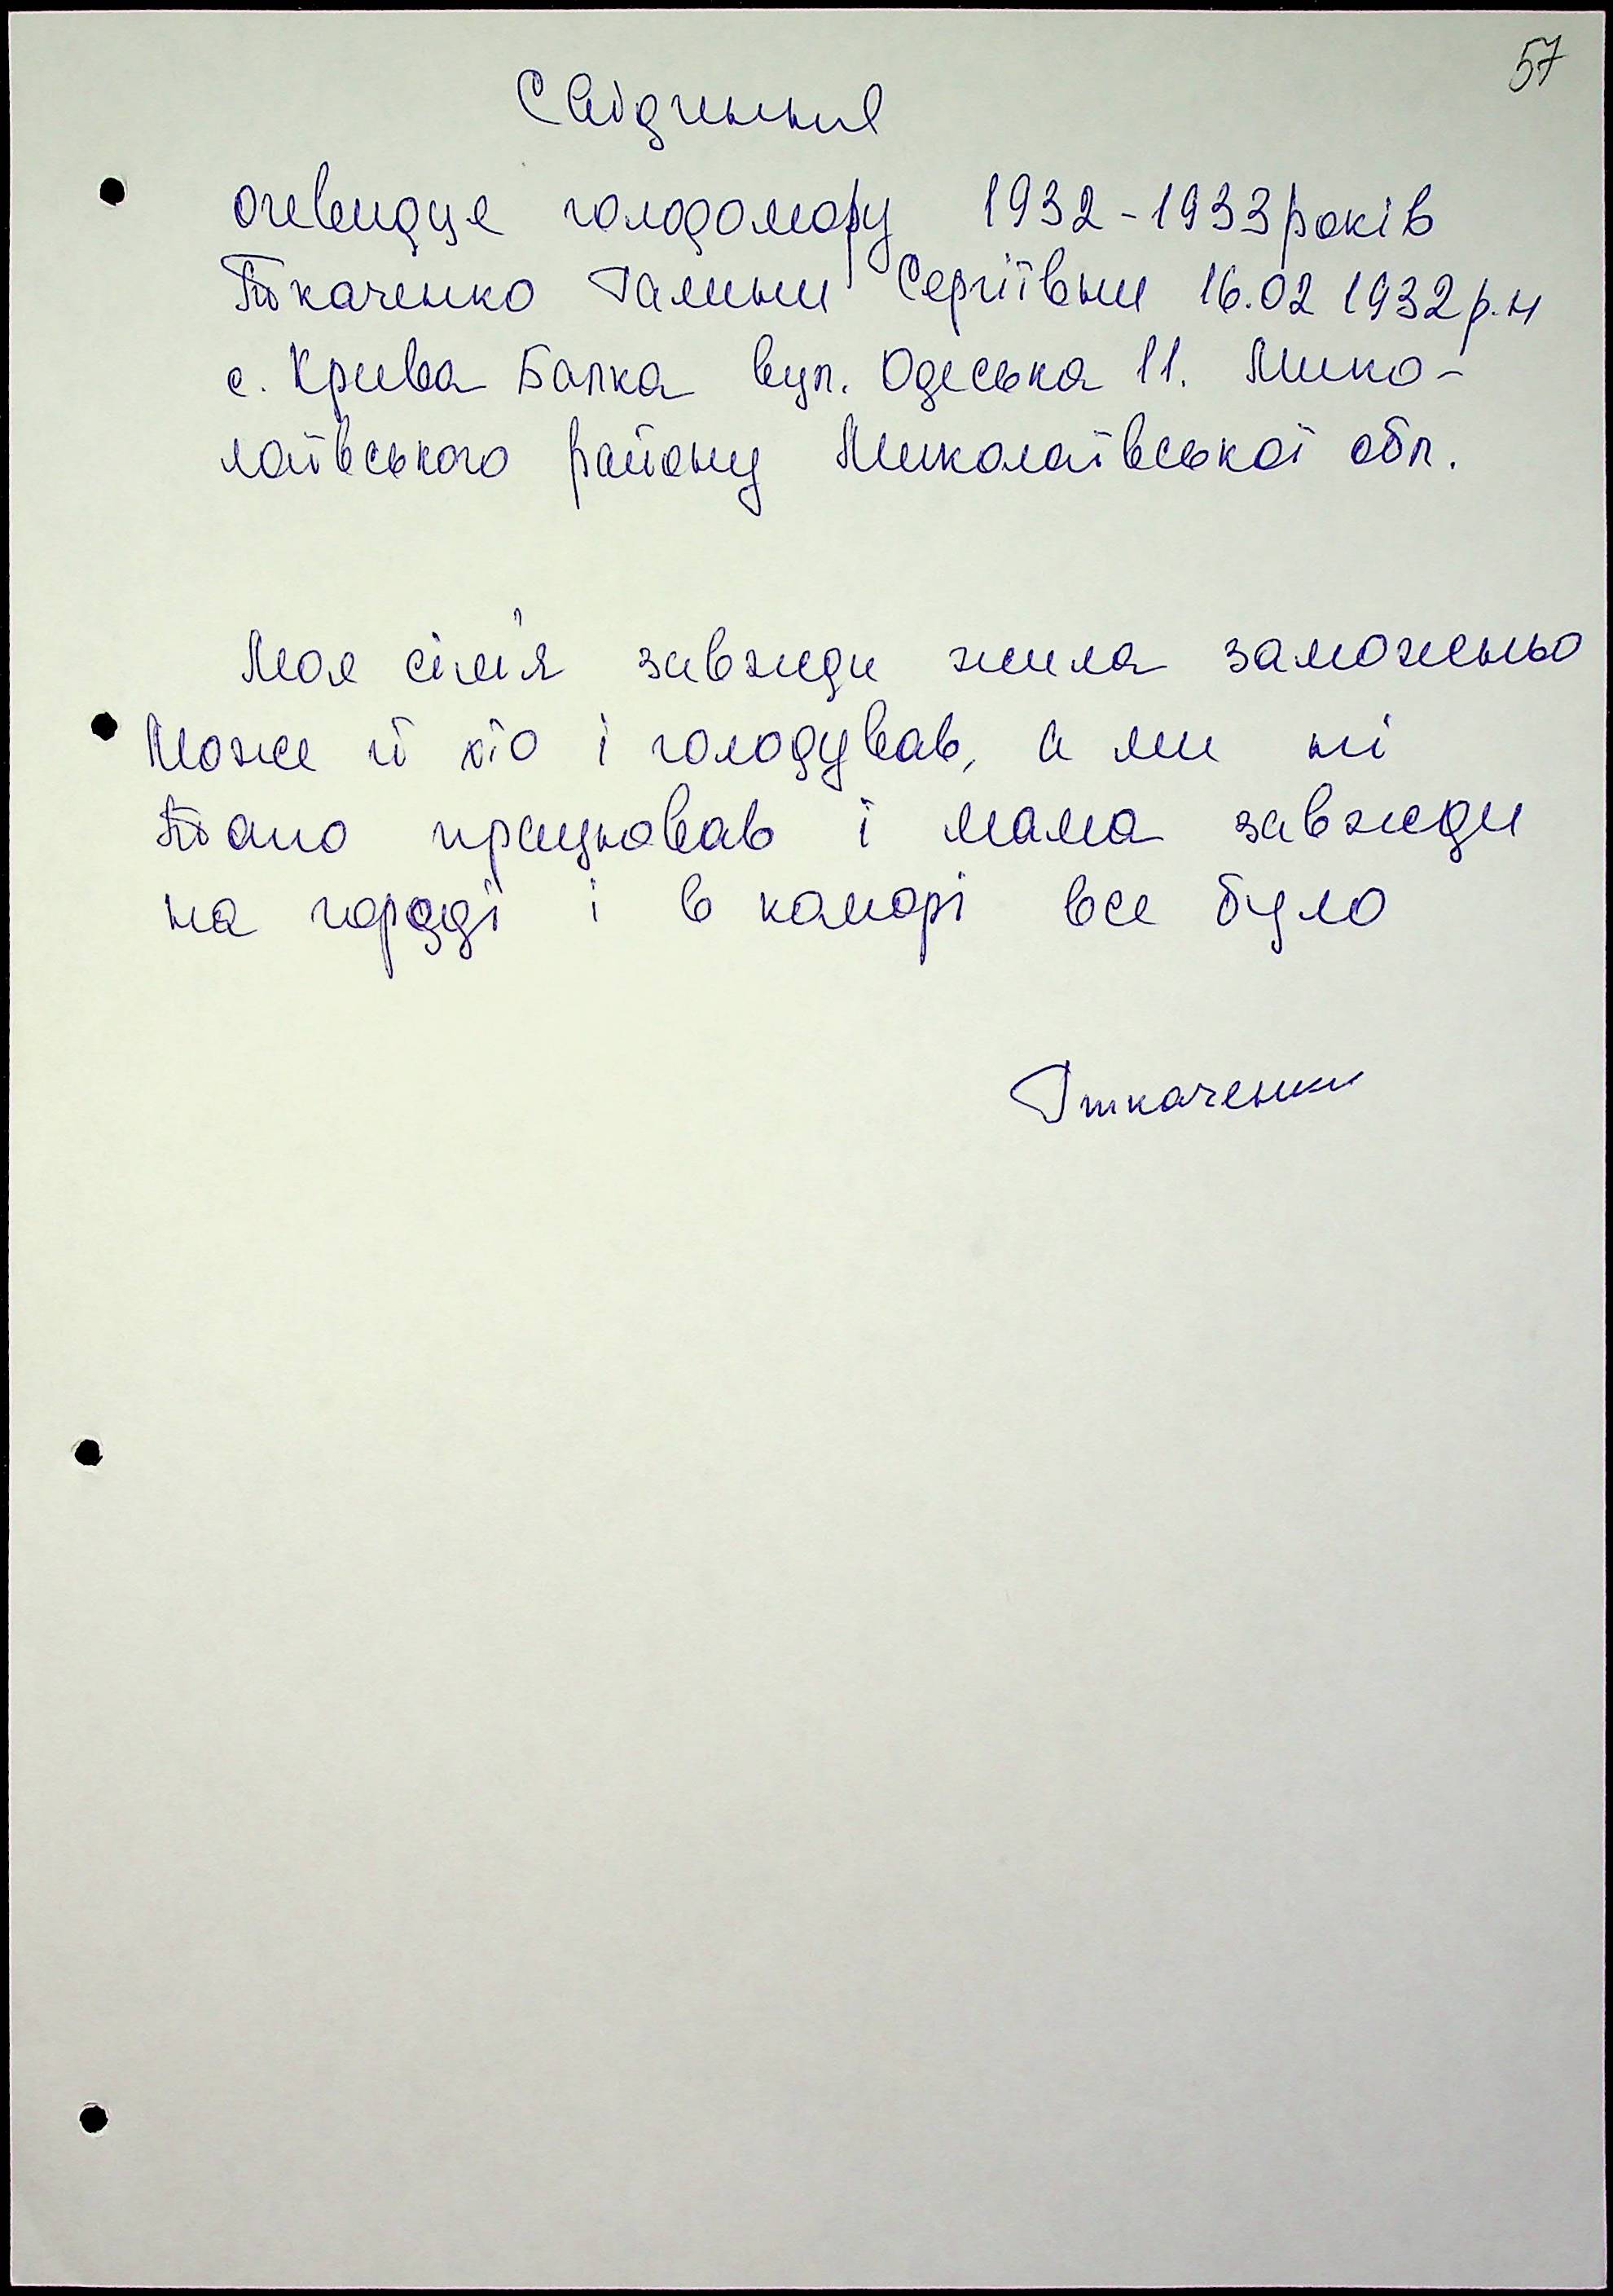 57
Свідчення
очевидця голодомору 1932-1933 років
Ткаченко Галини Сергіївни 16.02 1932 р.н
с. Крива Балка вул. Одеська 11. Мико-
лаївського району Миколаївської обл.
Моя сім'я завжди жила заможньо
Може й хто і голодував, а ми ні
Тато працював і мама завжди
на городі і в коморі все було
Ткаченко